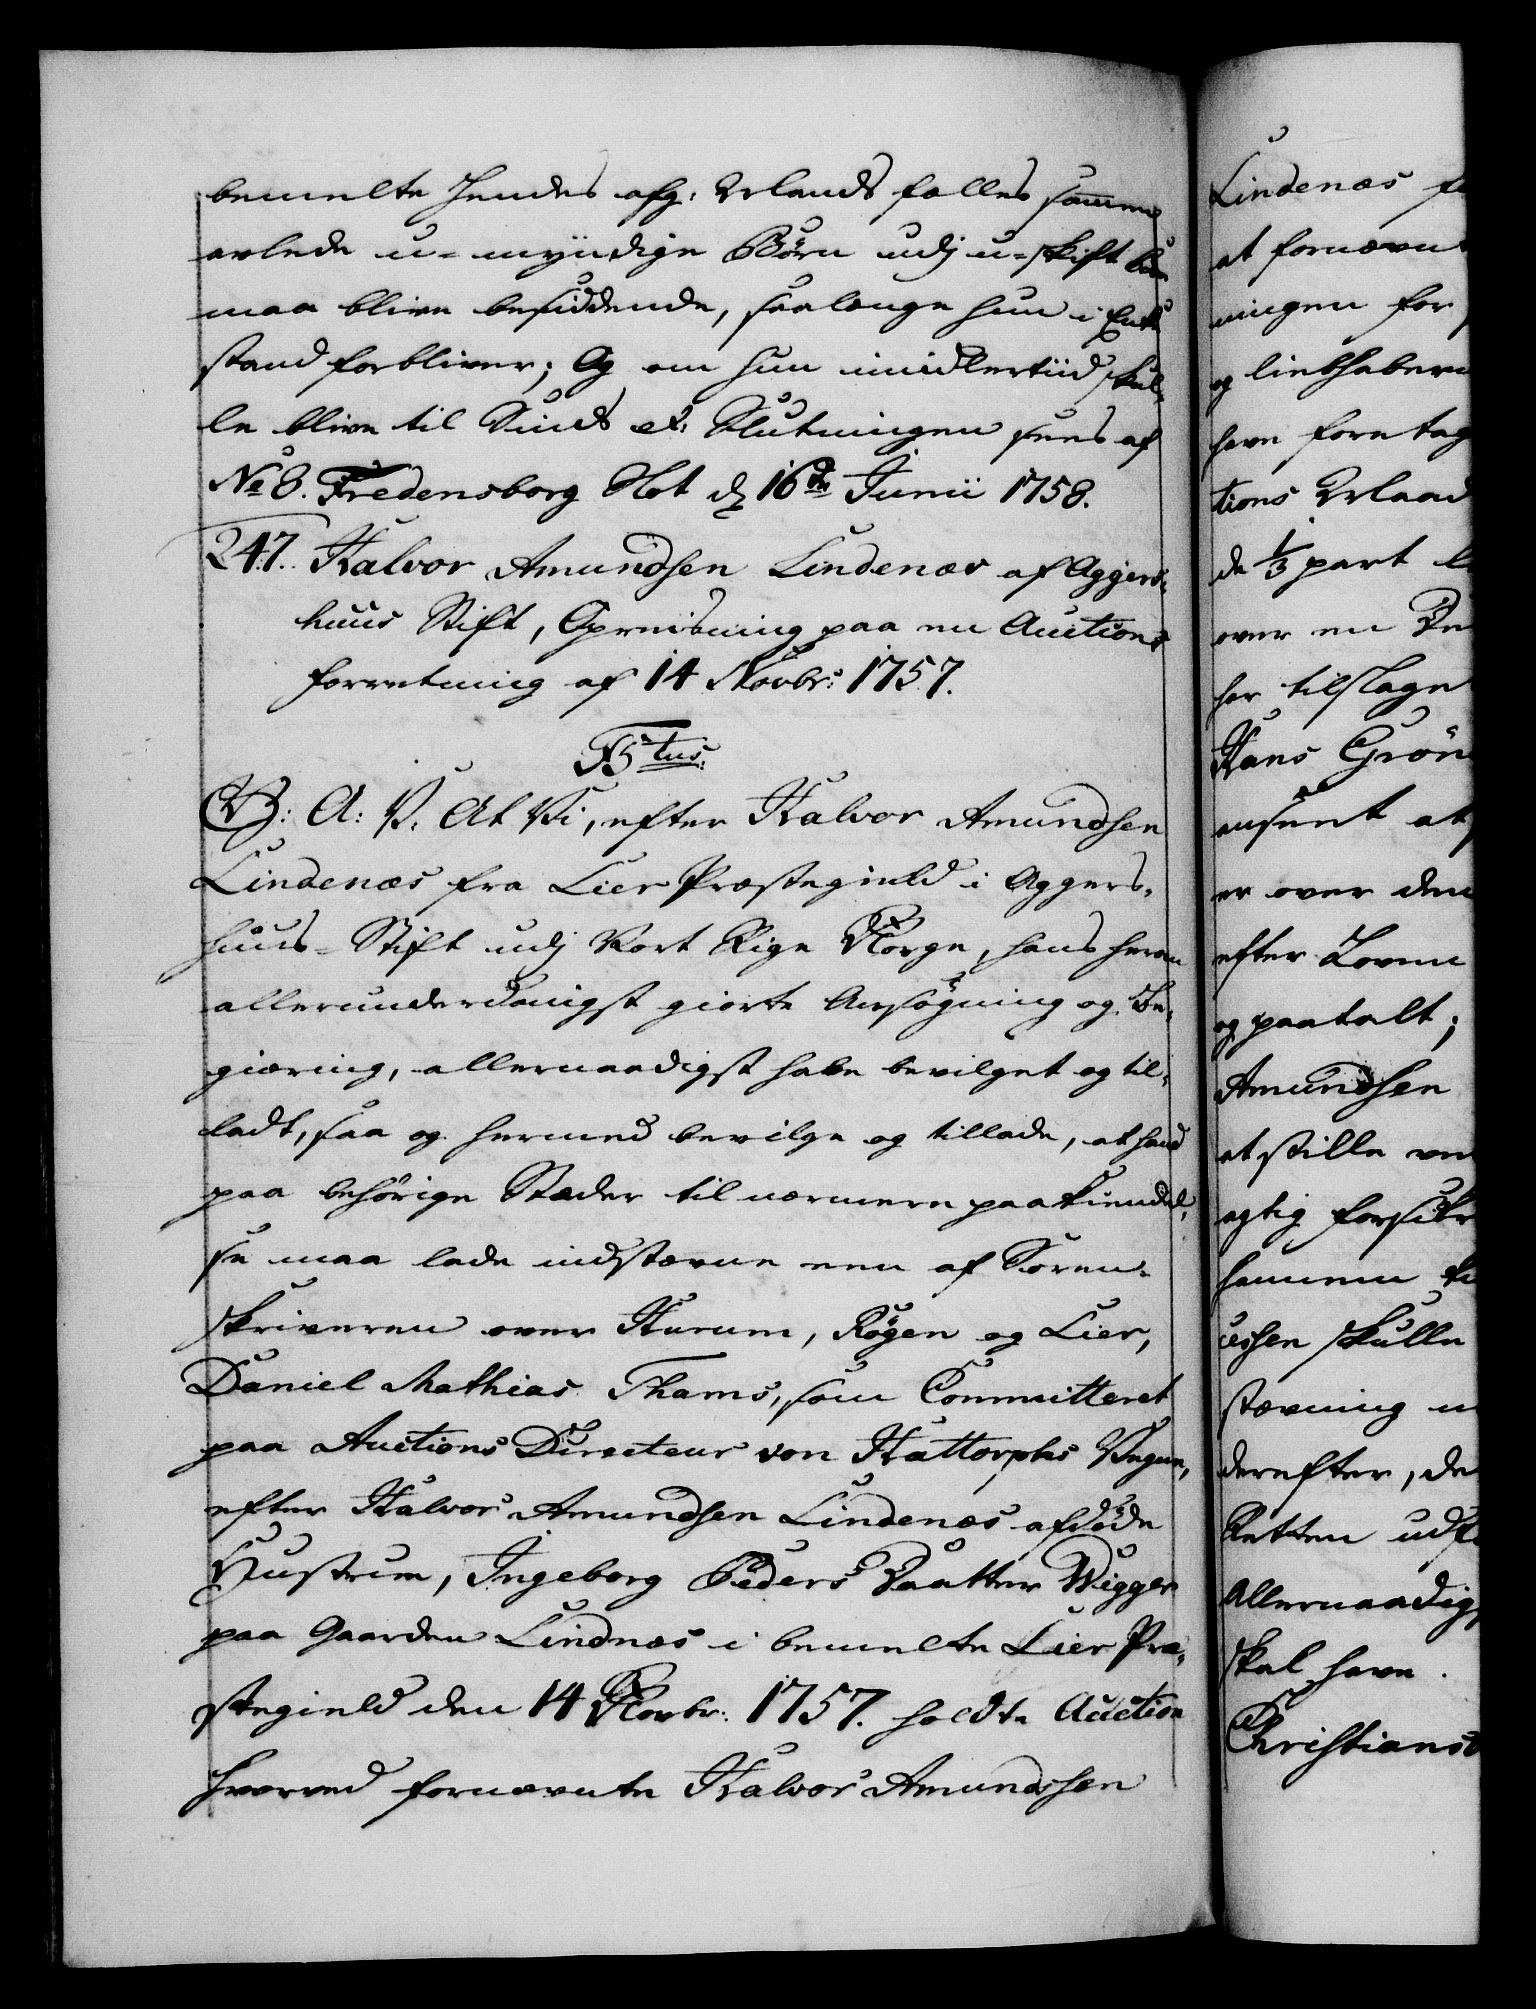 bemelte hendes afg: Mands fælles sammen
avlede u-myndige Børn udj u-skift Boe
maa blive besiddende, saalænge hun i Enke
stand forbliver; Og om hun imidlertiid skul-
le blive til Sinds &c: Slutningen sees af
No 8. Fredensborg Slot d 16de Junii 1758.
247. Halvor Amundsen Lindenæs af Aggers-
huus Stift, Opreisning paa en Auctions
forretning af 14 Novbr: 1757.
F5tus.
G: A: V. At Vi, efter Halvor Amundsen
Lindenæs fra Lier Præstegield i Aggers-
huus-Stift udj Vort Rige Norge, hans herom
allerunderdanigst giorte Ansøgning og Be-
giæring, allernaadigst have bevilget og til-
ladt, saa og hermed bevilge og tillade, at hand
paa behørige Stæder til nærmere paakiendel-
se maa lade indstævne een af Soren-
skriveren over Hurum, Røgen og Lier,
Daniel Mathias Thams, som Committeret
paa Auctions Directeur von Hattorphs Vegne,
efter Halvor Amundsen Lindenæs afdøde
Hustrue, Ingeborg Peders Daatter Wigger
paa Gaarden Lindnæs i bemelte Lier Præ-
stegield den 14 Novbr: 1757. holdte Auction
hvorved fornævnte Halvor Amundsen
Lindenæs
at fornævn
ningen for
og liebhabern
have foretag
tions
de 1/3 part
over en
har tilslaget
Hans Grön
er over den
efter Loven
og paatalt;
Amundsen
at stille
agtig forsikr
hannem
skulle
stævning
derefter, de
Retten udst
Allernaadigs
skal have.
Christiansb